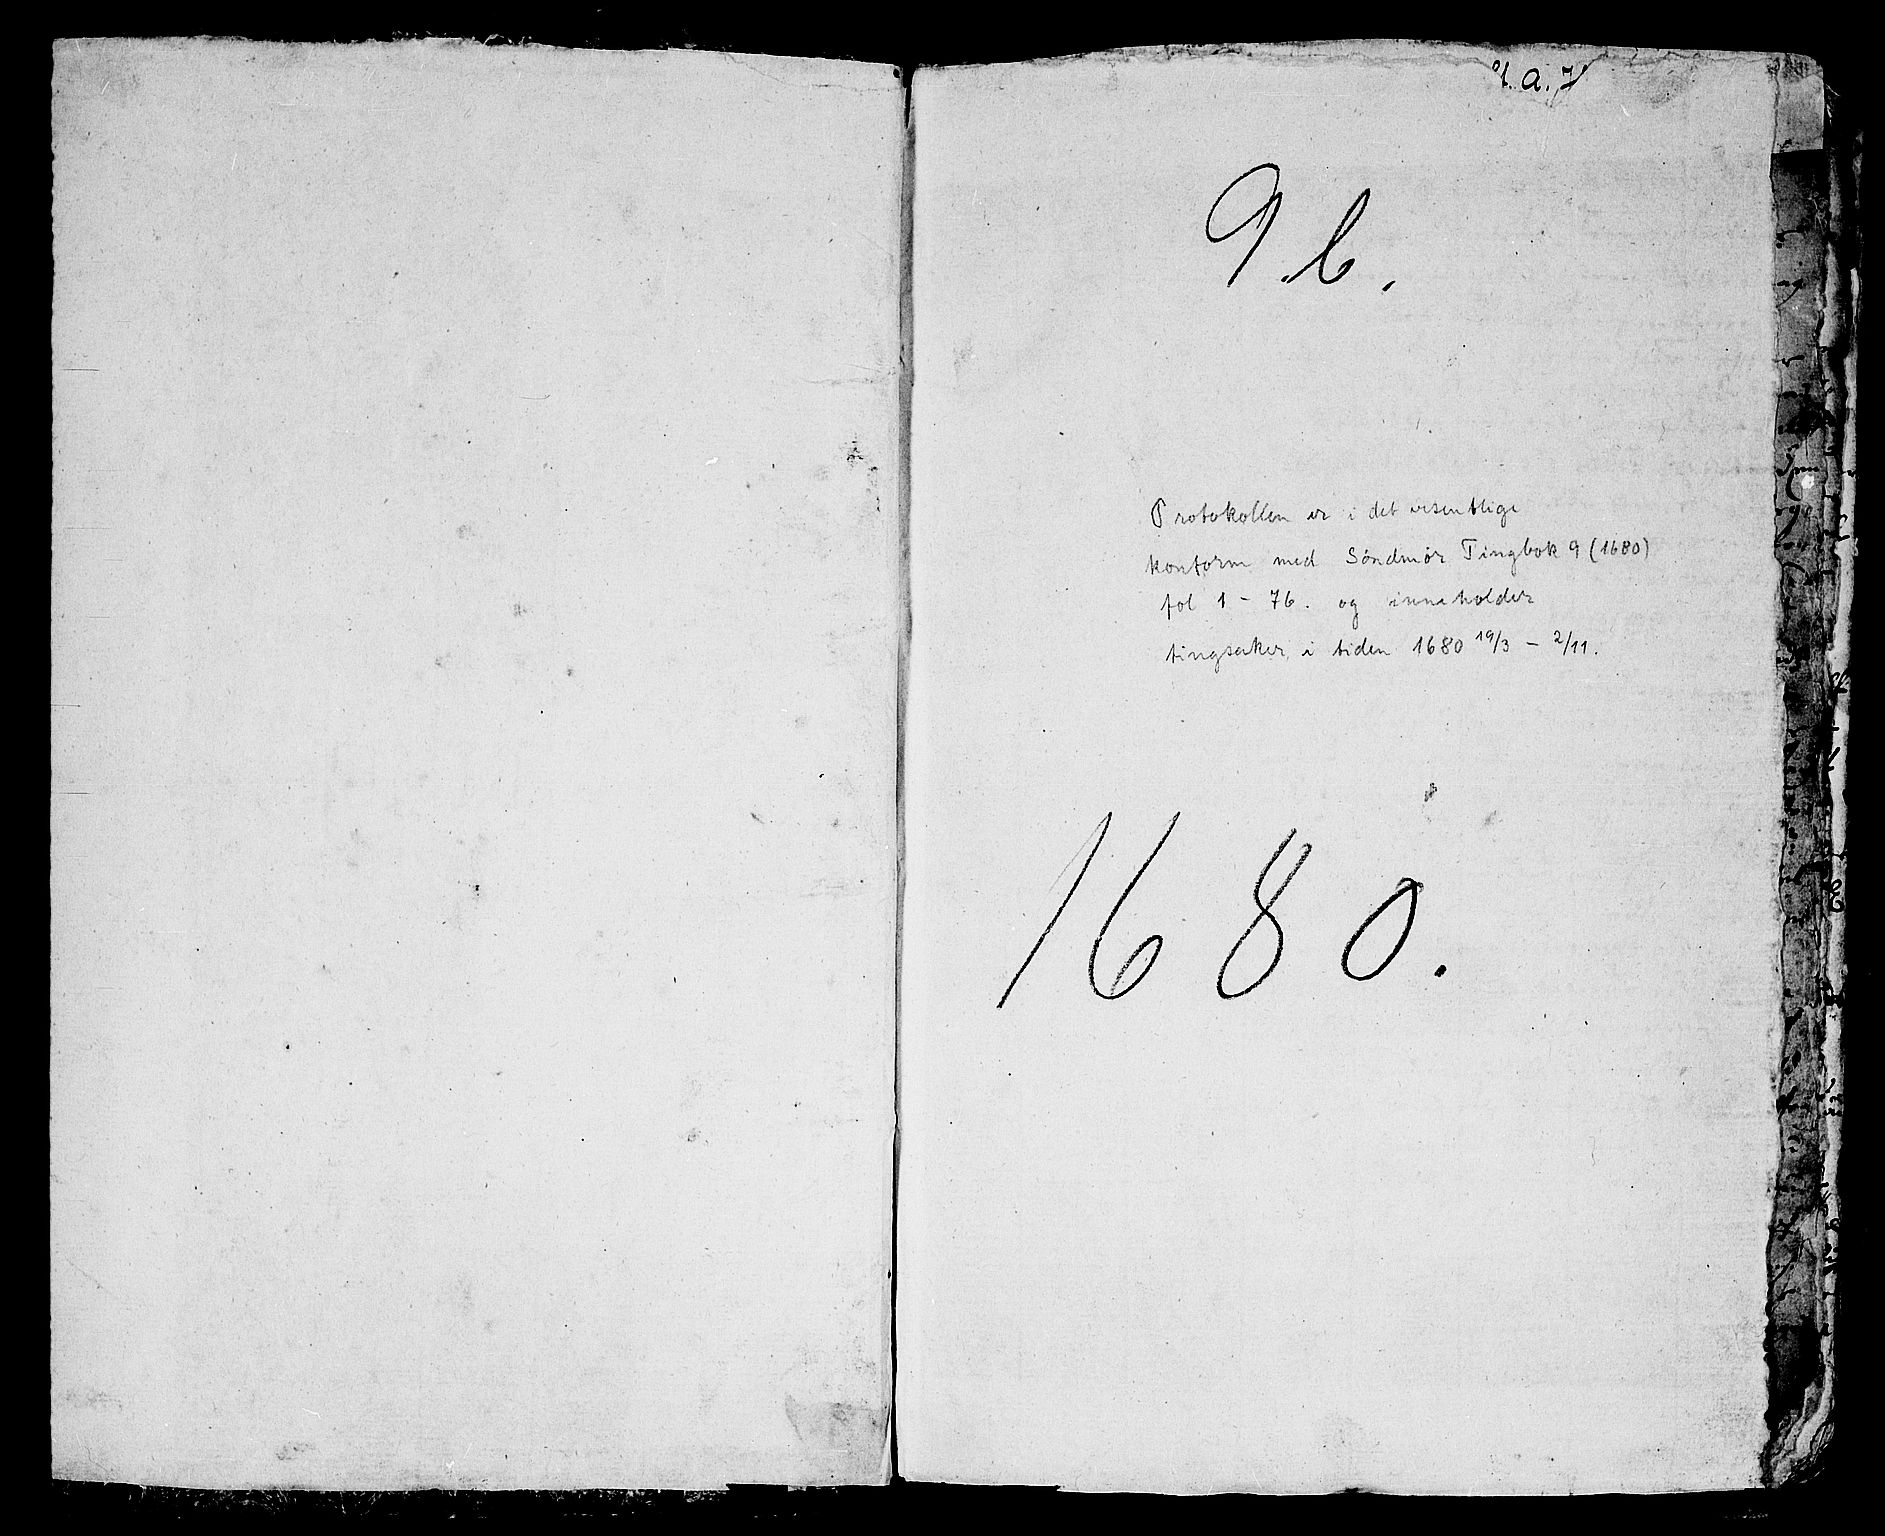 a.
9.b.
Protokollen er i det vesentlige
konform med Søndmør Tingbok 9 (1680)
fol 1 - 76. og inneholder
tingsaker i tiden 1680 19/3 - 2/11.
1680.